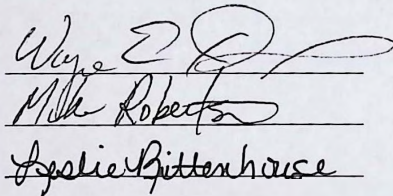 Wayne E
Mike Robertson
Leslie Rittenhouse